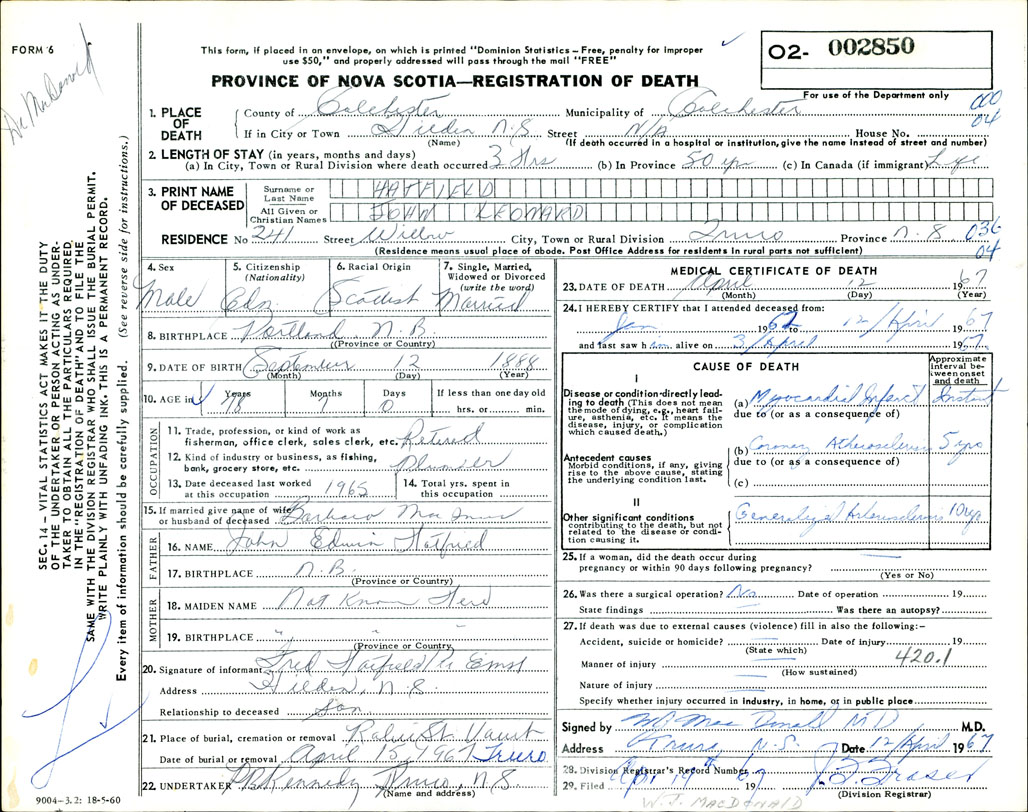 FORM 6
Dr. MacDonald
This form, if placed in an envelope, on which is printed "Dominion Statistics – Free, penalty for improper
use $50," and properly addressed will pass through the mail "FREE"
PROVINCE OF NOVA SCOTIA—REGISTRATION OF DEATH
O2- 002850
For use of the Department only
000
04
1. PLACE OF DEATH
County of Colchester Municipality of Colchester
If in City or Town Hilden N.S. Street N/A House No.
(Name) (If death occurred in a hospital or institution, give the name instead of street and number)
2. LENGTH OF STAY (in years, months and days)
(a) In City, Town or Rural Division where death occurred 3 Hrs (b) In Province 50 yrs (c) In Canada (if immigrant) Life
3. PRINT NAME OF DECEASED
Surname or Last Name HATFIELD
All Given or Christian Names JOHN LEONARD
RESIDENCE No 241 Street Willow City, Town or Rural Division Truro Province N.S
036
04
(Residence means usual place of abode. Post Office Address for residents in rural parts not sufficient)
4. Sex Male
5. Citizenship (Nationality) Cdn
6. Racial Origin Scottish
7. Single, Married, Widowed or Divorced (write the word) Married
8. BIRTHPLACE Portland N.B.
(Province or Country)
9. DATE OF BIRTH September 12 1888
(Month) (Day) (Year)
10. AGE in Years 78 Months 7 Days 0 If less than one day old
hrs. or min.
OCCUPATION
11. Trade, profession, or kind of work as
fisherman, office clerk, sales clerk, etc. Retired
12. Kind of industry or business, as fishing,
bank, grocery store, etc.
13. Date deceased last worked
at this occupation 1965
14. Total yrs. spent in
this occupation
15. If married give name of wife
or husband of deceased Barbara Mac Innis
FATHER
16. NAME John Edwin Hatfield
17. BIRTHPLACE N.B.
(Province or Country)
MOTHER
18. MAIDEN NAME Not Known Here
19. BIRTHPLACE " " "
(Province or Country)
20. Signature of informant Fred Hatfield
Address Hilden, N.S.
Relationship to deceased Son
21. Place of burial, cremation or removal Robie St. Vault
Date of burial or removal April 15, 1967 Truro
22. UNDERTAKER Kennedy Truro, N.S
(Name and address)
9004–3.2: 18-5-60
MEDICAL CERTIFICATE OF DEATH
23. DATE OF DEATH April 12 1967
(Month) (Day) (Year)
24. I HEREBY CERTIFY that I attended deceased from:
Jan 1962 12/April 1967
and last saw him alive on 3/April 1967.
CAUSE OF DEATH
Approximate Interval between onset and death
I
Disease or condition directly leading to death (This does not mean the mode of dying, e.g., heart failure, asthenia, etc. It means the disease, injury, or complication which caused death.)
(a) Myocardial Infarct Instant
due to (or as a consequence of)
Antecedent causes
Morbid conditions, if any, giving rise to the above cause, stating the underlying condition last.
(b) Coronary Atherosclerosis 5 yrs
due to (or as a consequence of)
(c)
II
Other significant conditions
contributing to the death, but not related to the disease or condition causing it.
Generalized Arteriosclerosis 10 yrs
25. If a woman, did the death occur during
pregnancy or within 90 days following pregnancy? —
(Yes or No)
26. Was there a surgical operation? No Date of operation 19
State findings Was there an autopsy?
27. If death was due to external causes (violence) fill in also the following:–
Accident, suicide or homicide? Date of injury 19
(State which)
420.1
Manner of injury
(How sustained)
Nature of injury
Specify whether injury occurred in industry, in home, or in public place
Signed by Mac Donald MD M.D.
Address Truro N.S. Date 12/April 1967
28. Division Registrar's Record Number
29. Filed Ap. 14th 1967
(Division Registrar)
W.J. MACDONALD
SEC. 14 — VITAL STATISTICS ACT MAKES IT THE DUTY
OF THE UNDERTAKER OR PERSON ACTING AS UNDER-
TAKER TO OBTAIN ALL THE PARTICULARS REQUIRED,
IN THE "REGISTRATION OF DEATH" AND TO FILE THE
SAME WITH THE DIVISION REGISTRAR WHO SHALL ISSUE THE BURIAL PERMIT.
WRITE PLAINLY WITH UNFADING INK. THIS IS A PERMANENT RECORD.
Every item of information should be carefully supplied. (See reverse side for instructions.)